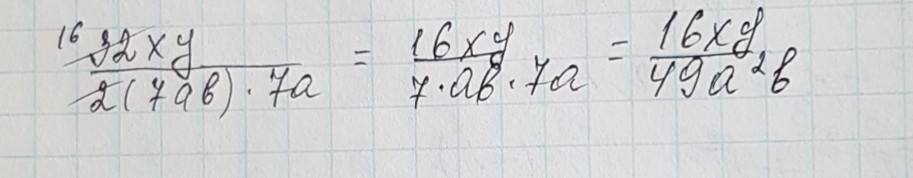 16 32xy / 2(7ab) · 7a = 16xy / 7·ab·7a = 16xy / 49a²b